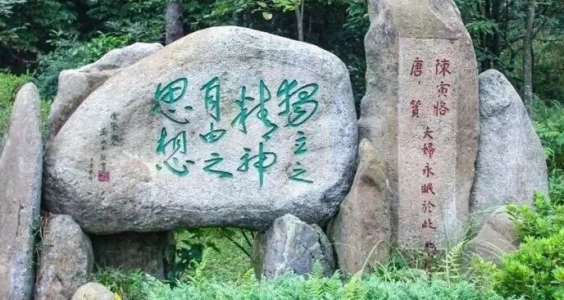 陳寅恪
唐篔
夫婦永眠於此
獨立之
精神
自由之
思想